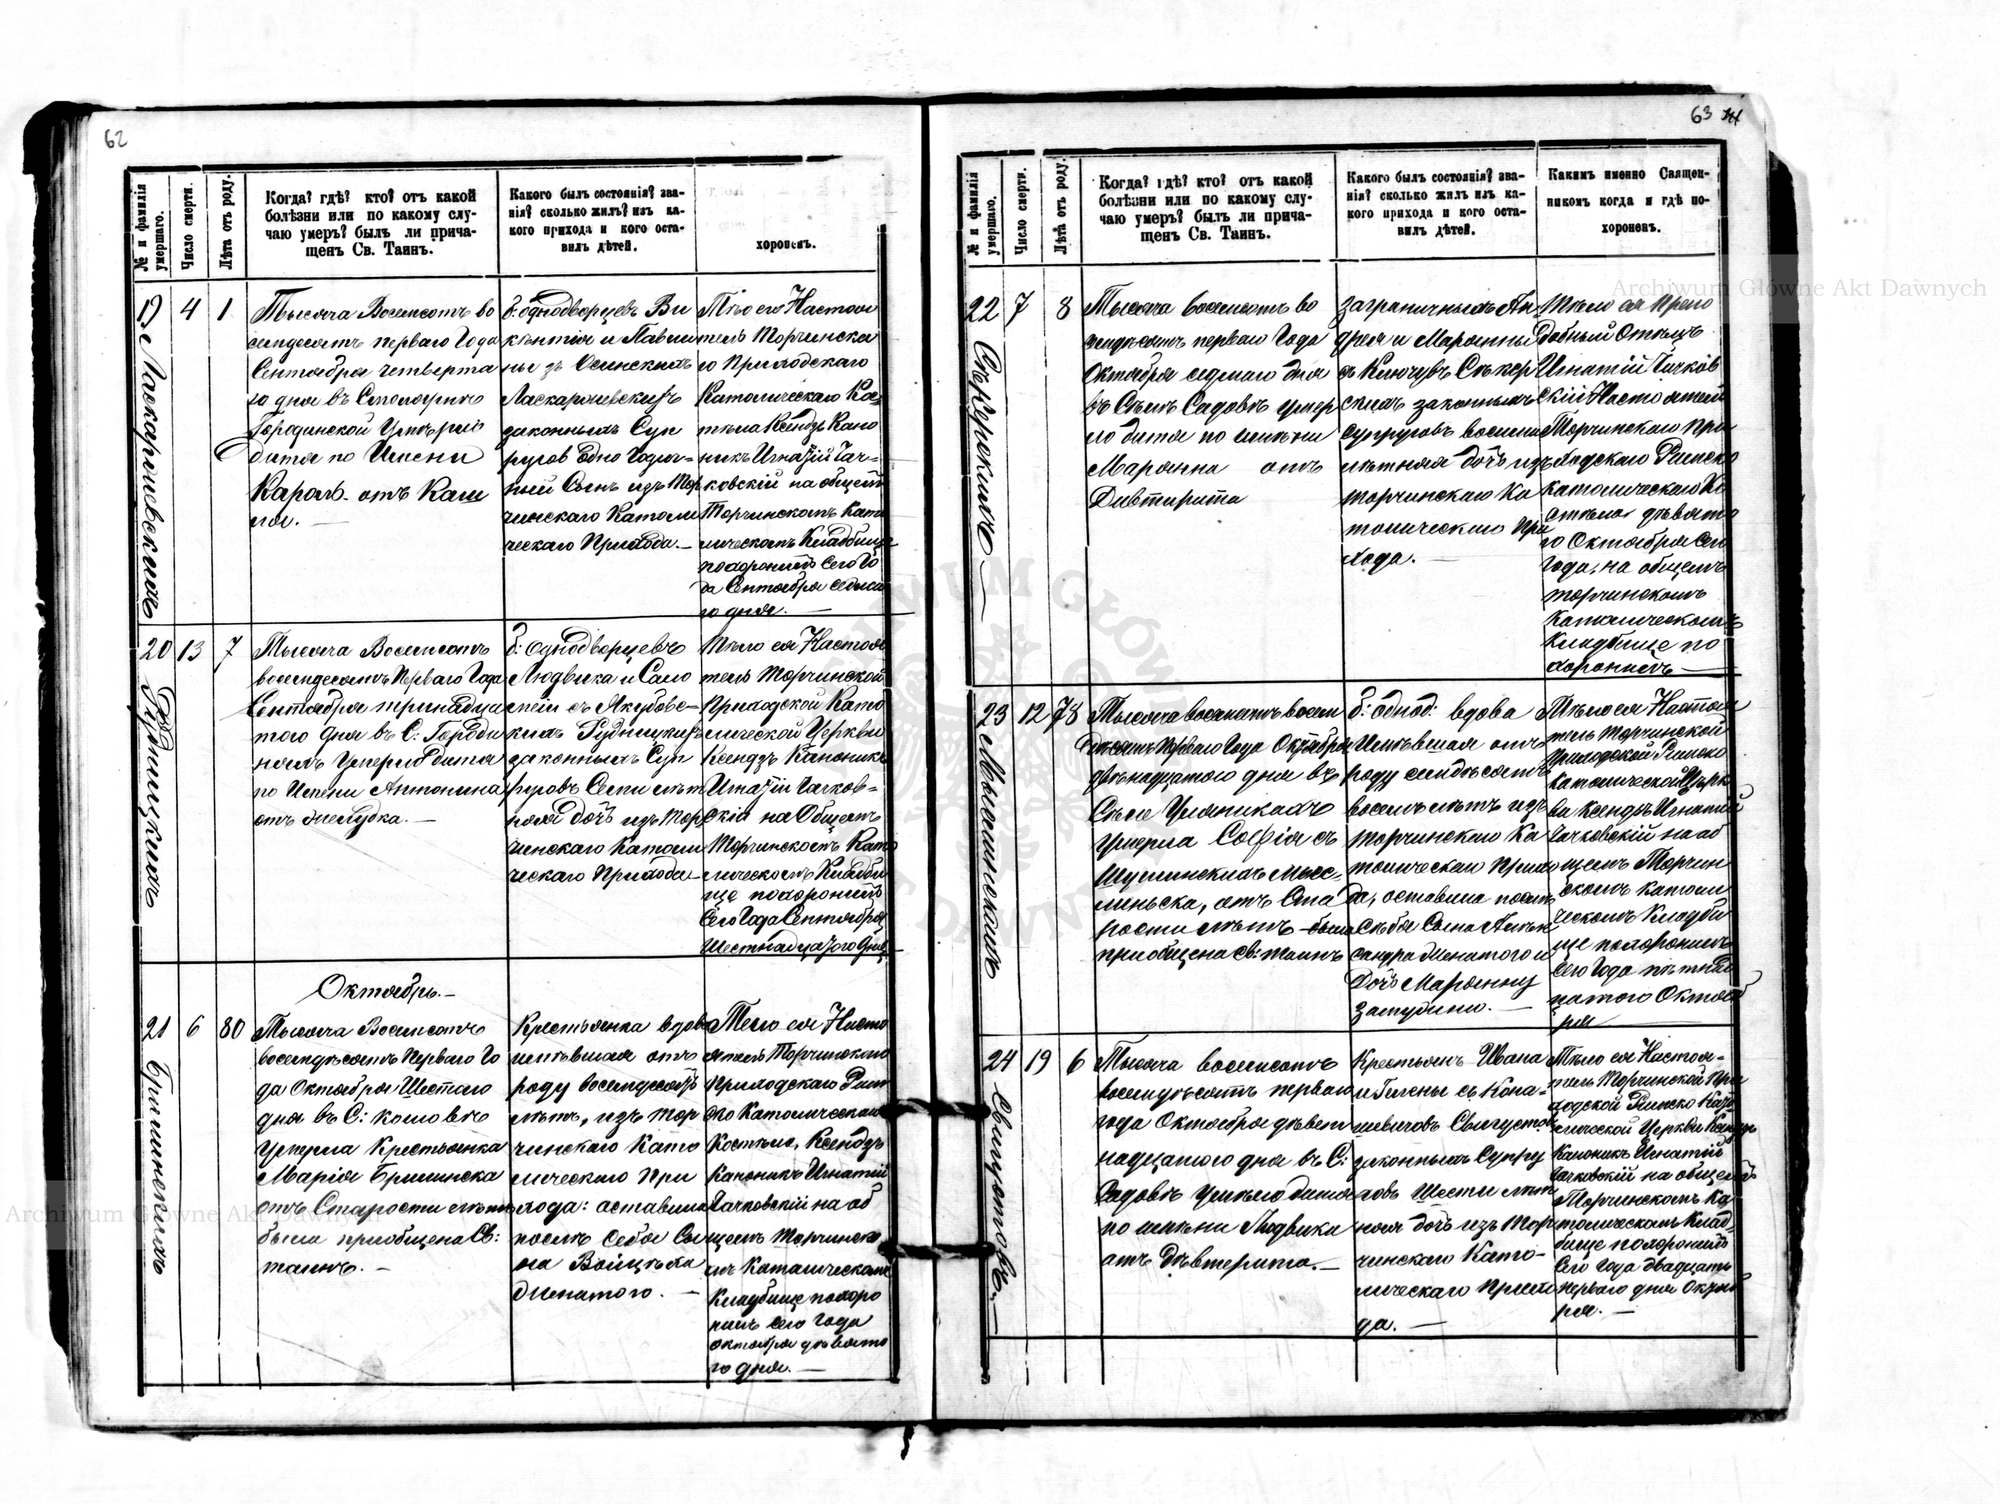 62
№ и фамилія умершаго.
Число смерти.
Лѣта отъ роду.
Когда? гдѣ? кто? отъ какой
болѣзни или по какому слу-
чаю умеръ? былъ ли прича-
щенъ Св. Таинъ.
Какого былъ состоянія? зва-
нія? сколько жилъ? изъ ка-
кого прихода и кого оста-
вилъ дѣтей.
хороненъ.
19
4
1
Тысяча Восемсотъ во
семдесятъ перваго Года
Сентября четверта
го дня въ
Городинской умерло
дитя по Имени
Кароль отъ Каш
ля.
б: однодворцевъ Ви
кентія и Павли
ны зъ Осинскихъ
Ласкаржевскихъ
законныхъ Суп
руговъ одно Годич-
ный Сынъ изъ Тор
чинскаго Католи
ческаго Прихода.
Тѣло его Настоя
тель Торчинска
го Приходскаго
Католическаго Ко
стела Ксендзъ Кано
никъ Игнатій Гач-
ковскій на общемъ
Торчинскомъ Като
лическомъ Кладбище
похоронилъ сего Го
да Сентября седьма
го дня.
20
13
7
Рудницкихъ
Тысяча Восемсотъ
восемдесятъ Перваго Года
Сентября тринадца
того дня въ С: Городи
нахъ Умерло дитя
по Имени Антонина
отъ желудка.
б: однодворцевъ
Людвика и Сало
меи съ Якубовс-
кихъ Рудницкихъ
законныхъ Суп
руговъ Семи лѣт
няя дочь изъ Тор
чинскаго Католи
ческаго Прихода
Тѣло ея Настоя
тель Торчинской
Приходской Като
лической Церкви
Ксендзъ Каноникъ
Игнатій Гачков-
скій на Общемъ
Торчинскомъ Като
лическомъ Кладби
ще похоронилъ
Сего Года Сентября
Шестнадцатого дня
Октябрь.
21
6
80
Тысяча Восемсотъ
восемдѣсятъ Перваго Го
да Октября Шестаго
дня въ С:
Умерла Крестьянка
Марія
отъ Старости лѣтъ
была пріобщена Св:
таинъ.
Крестьянка вдова
имѣвшая отъ
роду восемдесятъ
лѣтъ, изъ Тор
чинскаго Като
лическаго При
хода: оставила
послѣ себя Сы
на Войцѣха
женатого.
Тело ея Насто
ятель Торчинскаго
Приходскаго Рим
ско Католическаго
Костела, Ксендзъ
Каноникъ Игнатій
Гачковскій на об
щемъ Торчинско
мъ Католическомъ
Кладбище похоро
нилъ сего Года
Октября девято
го дня.
63
№ и фамилія умершаго.
Число смерти.
Лѣта отъ роду.
Когда? гдѣ? кто? отъ какой
болѣзни или по какому слу-
чаю умеръ? былъ ли прича-
щенъ Св. Таинъ.
Какого былъ состоянія? зва-
нія? сколько жилъ изъ ка-
кого прихода и кого оста-
вилъ дѣтей.
Какимъ именно Священ-
никомъ когда и гдѣ по-
хороненъ.
22
7
8
Тысяча восемсотъ во
семдѣсятъ перваго Года
Октября седмаго дня
въ Селѣ Садовѣ умер
ло дитя по имѣни
Марянна отъ
Дивтирита
заграничныхъ Ан
дрея и Марянны
законныхъ
супруговъ восьми
лѣтняя дочь изъ
торчинскаго Ка
толическаго При
хода.
Тѣло ея Препо
добный Отецъ
Игнатій Гачков
скій Настоятель
Торчинскаго При
ходскаго Римско
католическаго Ко
стела девято
го Октября сего
года, на общемъ
торчинскомъ
Католическомъ
Кладбище по
хоронилъ
23
12
78
Тысяча восемсотъ восем
десятъ Перваго Года Октября
двѣнадцатого дня въ
Селѣ
умерла Софія съ
отъ Ста
рости лѣтъ была
пріобщена Св: таинъ
б: однод: вдова
Имѣвшая отъ
роду семдѣсятъ
восемъ лѣтъ изъ
торчинскаго Ка
толическаго прихо
да, оставила послѣ
Себя Сына Алек
сандра женатого и
Дочь Марянну
замужню.
Тѣло ея Настоя
тель Торчинской
Приходской Римско
Католической Церк
ви Ксендзъ Игнатій
Гачковскій на об
щемъ Торчин
скомъ Католи
ческомъ Кладби
ще похоронилъ
Сего Года пятнад
цатого Октяб
ря
24
19
6
Тысяча восемсотъ
восемдѣсятъ перваго
года Октября девят
надцатого дня въ С:
Садовѣ умѣрло дитя
по имѣни Людвика
отъ Дѣвтерита.
Крестьянъ Ивана
и Гелены съ
законныхъ Супру
говъ Шести лѣт
няя дочь изъ Тор
чинскаго Като-
лическаго Прихо
да.
Тѣло ея Настоя-
тель Торчинской При
ходской Римско Като
лической Церкви Ксендзъ
Каноникъ Игнатій
Гачковскій на общемъ
Торчинскомъ Ка
толическомъ Клад
бище похоронилъ
Сего Года двадцать
перваго дня Октяб
ря.
Archiwum Główne Akt Dawnych
Archiwum Główne Akt Dawnych